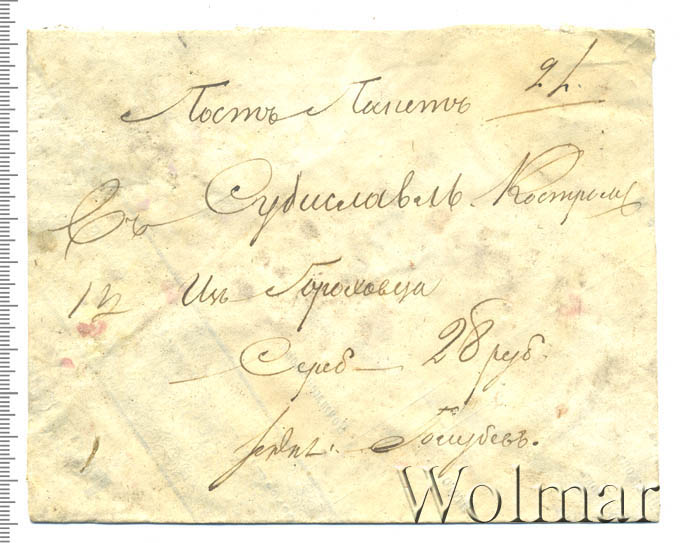 Постъ Пакетъ 2 L.
Въ Судиславль Костром
12 Изъ Гороховца
Сереб 28 руб.
Голубевъ.
Wolmar